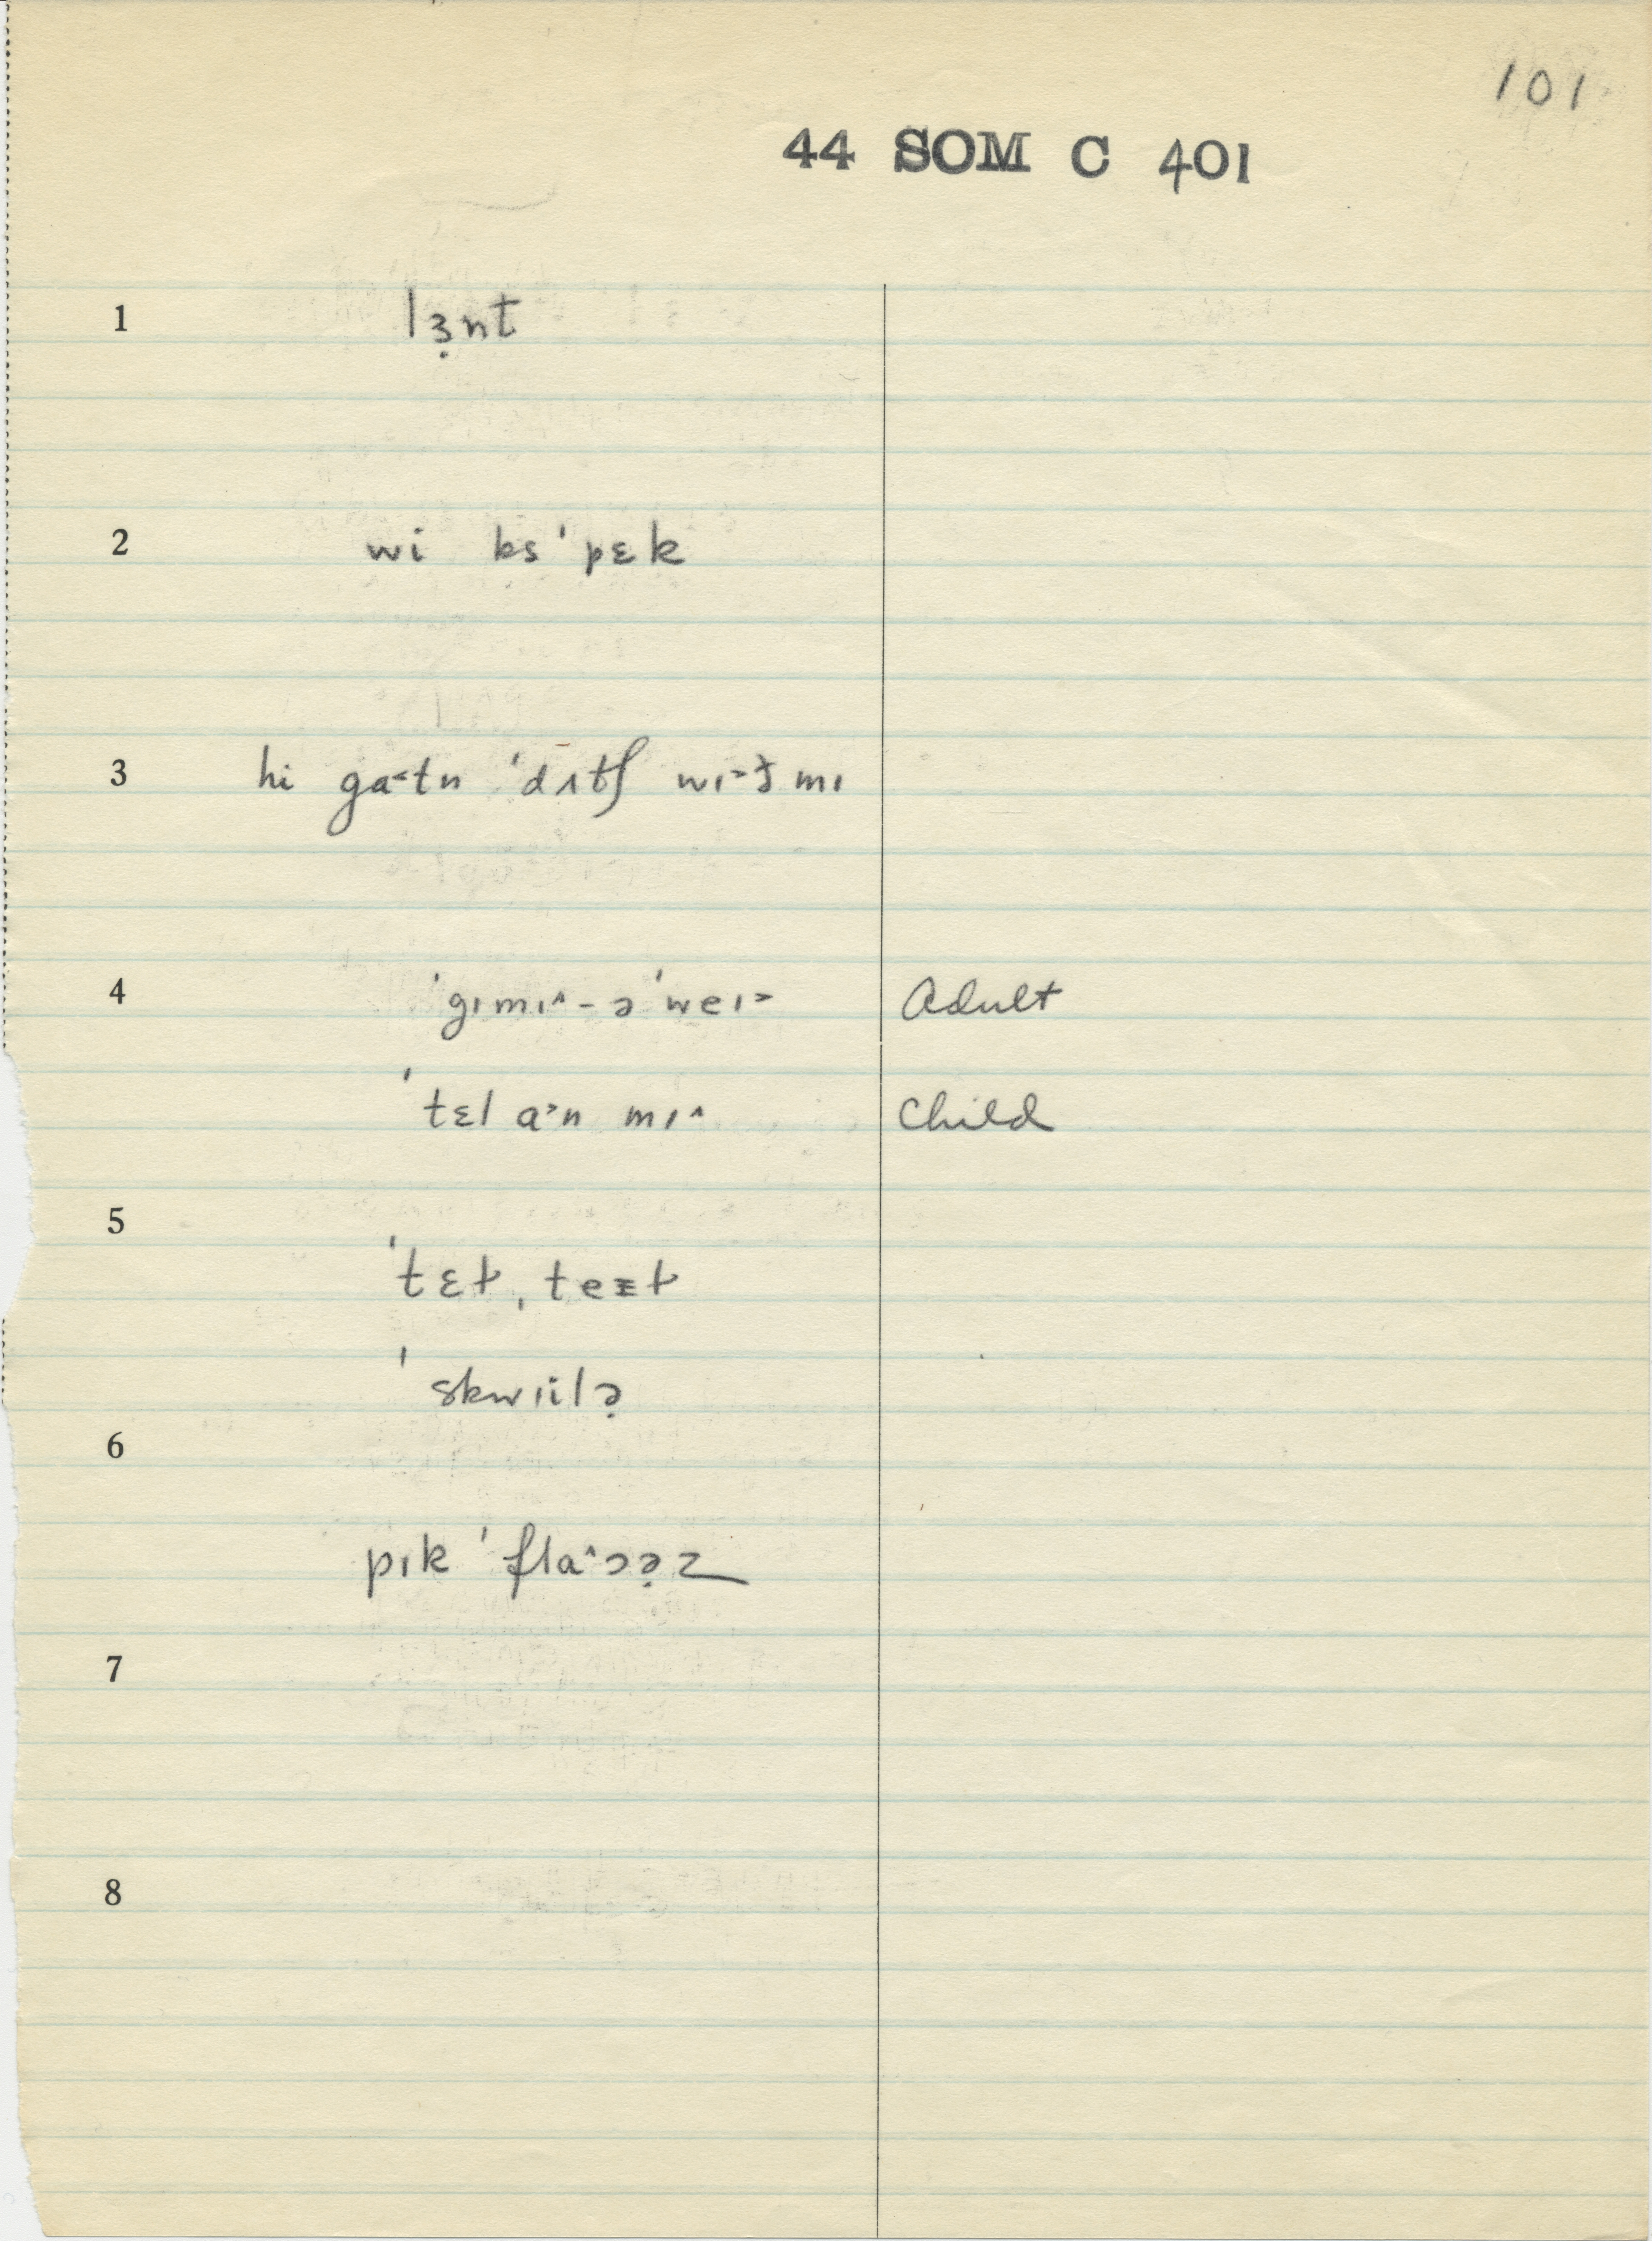 101
44 SOM C 401
1 lɜ̣nt
2 wi ks ˈpɛk
3 hi ga˂tn ˈdʌtʃ wɪ˃ð mɪ
4 ˈgɪmɪ˄-əˈweɪ˃ Adult
ˈtɛl a˃n mɪ˄ Child
5
ˈtɛt, teɪt
ˈskwɪilə̣
6
pɪk ˈfla˄ɔə̣z
7
8